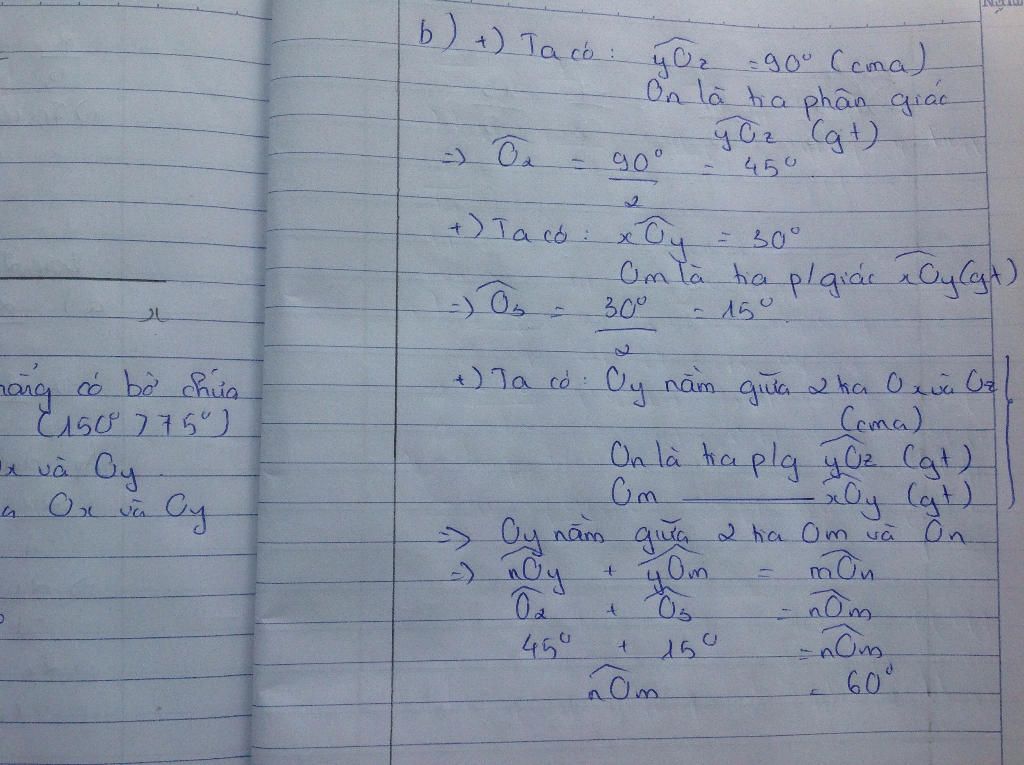 x
có bờ chứa
(150° > 75°)
và Oy
Ox và Oy
b) +) Ta có : yOz = 90° (cma)
On là tia phân giác
yOz (gt)
=> O2 = 90°/2 = 45°
+) Ta có : xOy = 30°
Om là tia p/giác xOy (gt)
=> O3 = 30°/2 = 15°
+) Ta có : Oy nằm giữa 2 tia Ox và Oz
(cma)
On là tia p/g yOz (gt)
Om ——— xOy (gt)
=> Oy nằm giữa 2 tia Om và On
=> nOy + yOm = mOn
O2 + O3 = nOm
45° + 15° = nOm
nOm = 60°